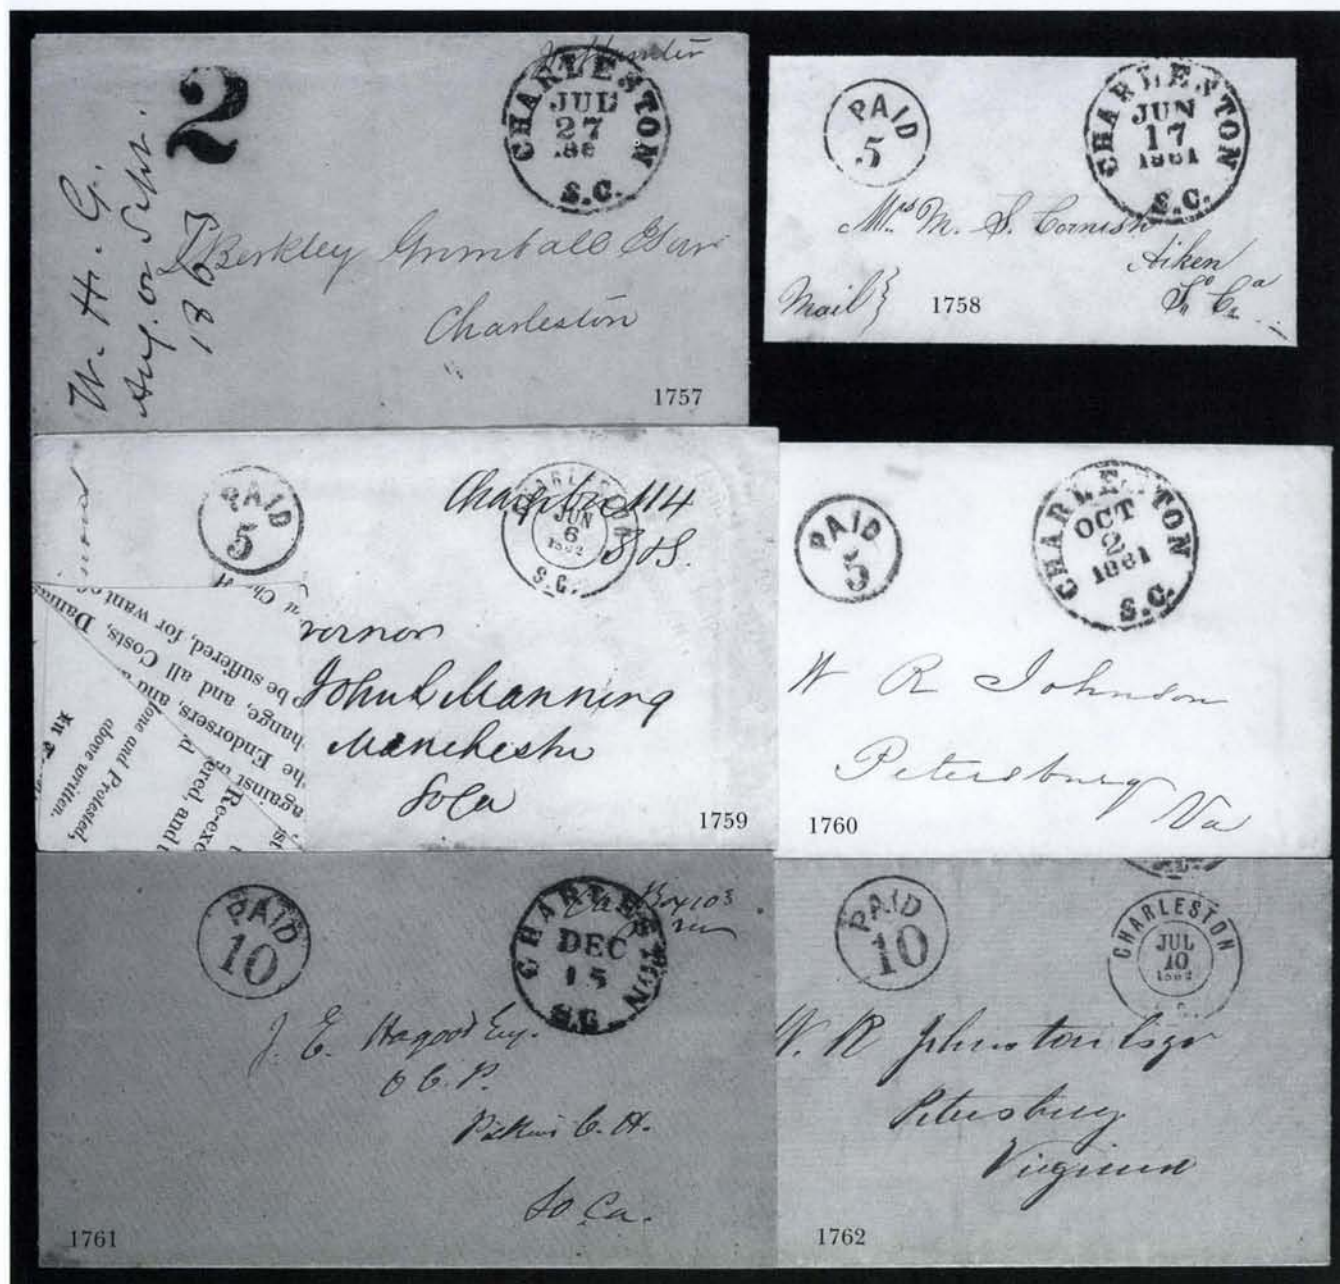 2
CHARLESTON
JUL
27
186
S.C.
W. H. G.
Aug. or Sept.
1863
Berkley Grimball Esqr
Charleston
1757
PAID
5
CHARLESTON
JUN
17
1861
S.C.
Mrs M. S. Cornish
Aiken
So Ca
Mail
1758
PAID
5
Charge Box 114
CHARLESTON
JUN
6
1862
S.C.
vernor
John L Manning
Manchester
So Ca
be suffered, for want of
hange, and all Costs, Damag
he Endorsers, and
against
Re-exc
ered, and
done and Protested,
above written.
1759
PAID
5
CHARLESTON
OCT
2
1861
S.C.
W R Johnson
Petersburg
Va
1760
PAID
10
Box 103
CHARLESTON
DEC
15
S.C.
J. E. Hagood Esq.
C. P.
Pickens C. H.
So Ca.
1761
PAID
10
CHARLESTON
JUL
10
1862
W. R Johnston Esqr
Petersburg
Virginia
1762